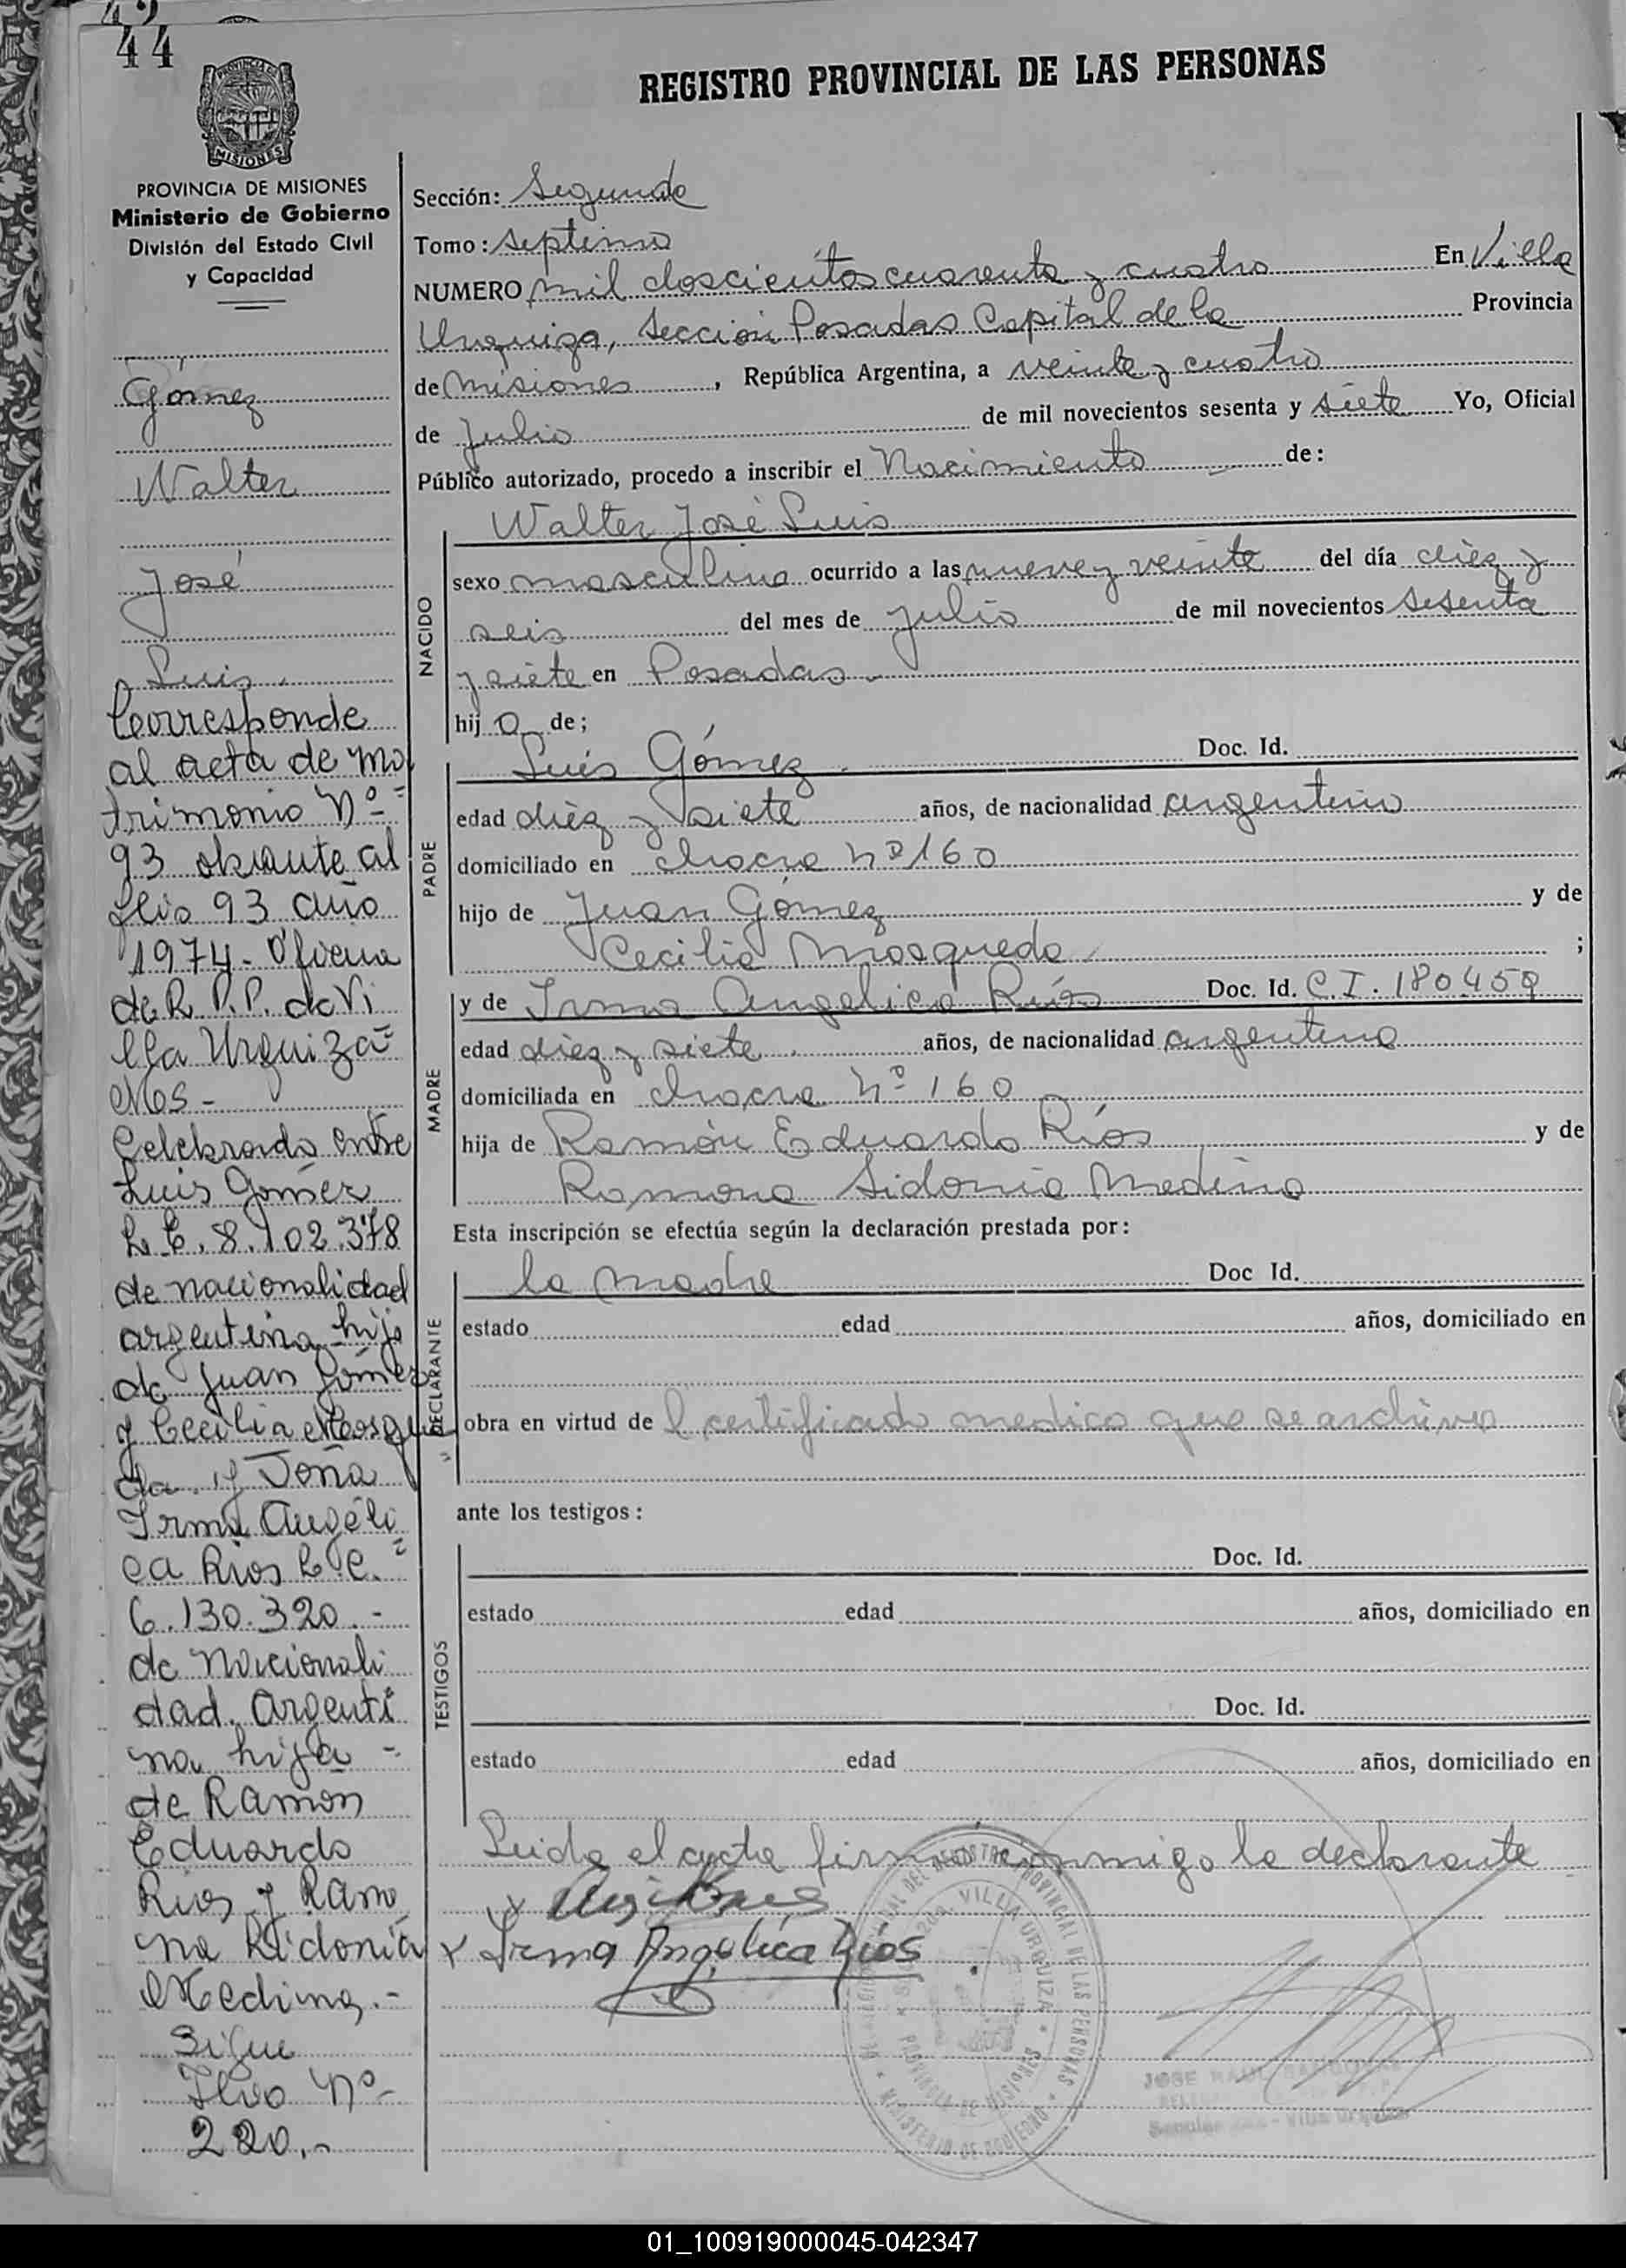 44
REGISTRO PROVINCIAL DE LAS PERSONAS
MISIONES
PROVINCIA DE MISIONES
Ministerio de Gobierno
División del Estado Civil
y Capacidad
Gómez
Walter
José
Luis.
Corresponde
al acta de ma
trimonio Nº=
93 obrante al
folio 93 año
1974- Oficina
de R. P.P. de Vi
lla Urquiza=
Mos-
Celebrado entre
Luis Gómez
L.E. 8.102.378
de nacionalidad
argentina hijo
de Juan Gómez
y Cecilia Mosque
da. y Doña
Irma Angéli
ca Rios L.C.=
6.130.320.-
de nacionali
dad. Argenti
na hija =
de Ramón
Eduardo
Rios y Ramo
na Sidonia
Medina.-
Sigue
Folio Nº-
220.-
Sección: Segunda
Tomo: Septimo
NUMERO mil doscientos cuarenta y cuatro En Villa
Urquiza, Sección Posadas Capital de la Provincia
de Misiones, República Argentina, a veinte y cuatro
de Julio de mil novecientos sesenta y siete Yo, Oficial
Público autorizado, procedo a inscribir el Nacimiento de:
Walter José Luis
NACIDO
sexo masculino ocurrido a las nueve y veinte del día diez y
seis del mes de julio de mil novecientos sesenta
y siete en Posadas-
hijo de;
PADRE
Luis Gómez. Doc. Id.
edad diez y siete años, de nacionalidad argentino
domiciliado en chacra Nº 160
hijo de Juan Gómez y de
Cecilia Mosqueda ;
MADRE
y de Irma Angelica Ríos Doc. Id. C.I. 180459
edad diez y siete años, de nacionalidad argentina
domiciliada en chacra Nº 160
hija de Ramón Eduardo Ríos y de
Ramona Sidonia Medina
Esta inscripción se efectúa según la declaración prestada por:
DECLARANTE
la madre Doc Id.
estado edad años, domiciliado en
obra en virtud del certificado medico que se archiva
ante los testigos:
TESTIGOS
Doc. Id.
estado edad años, domiciliado en
Doc. Id.
estado edad años, domiciliado en
Leida el acta firma conmigo la declarante
x Irma Angélica Ríos
VILLA URQUIZA
PROVINCIA DE MISIONES
MINISTERIO DE GOBIERNO
JOSE RAUL
Villa Urquiza
01_100919000045-042347